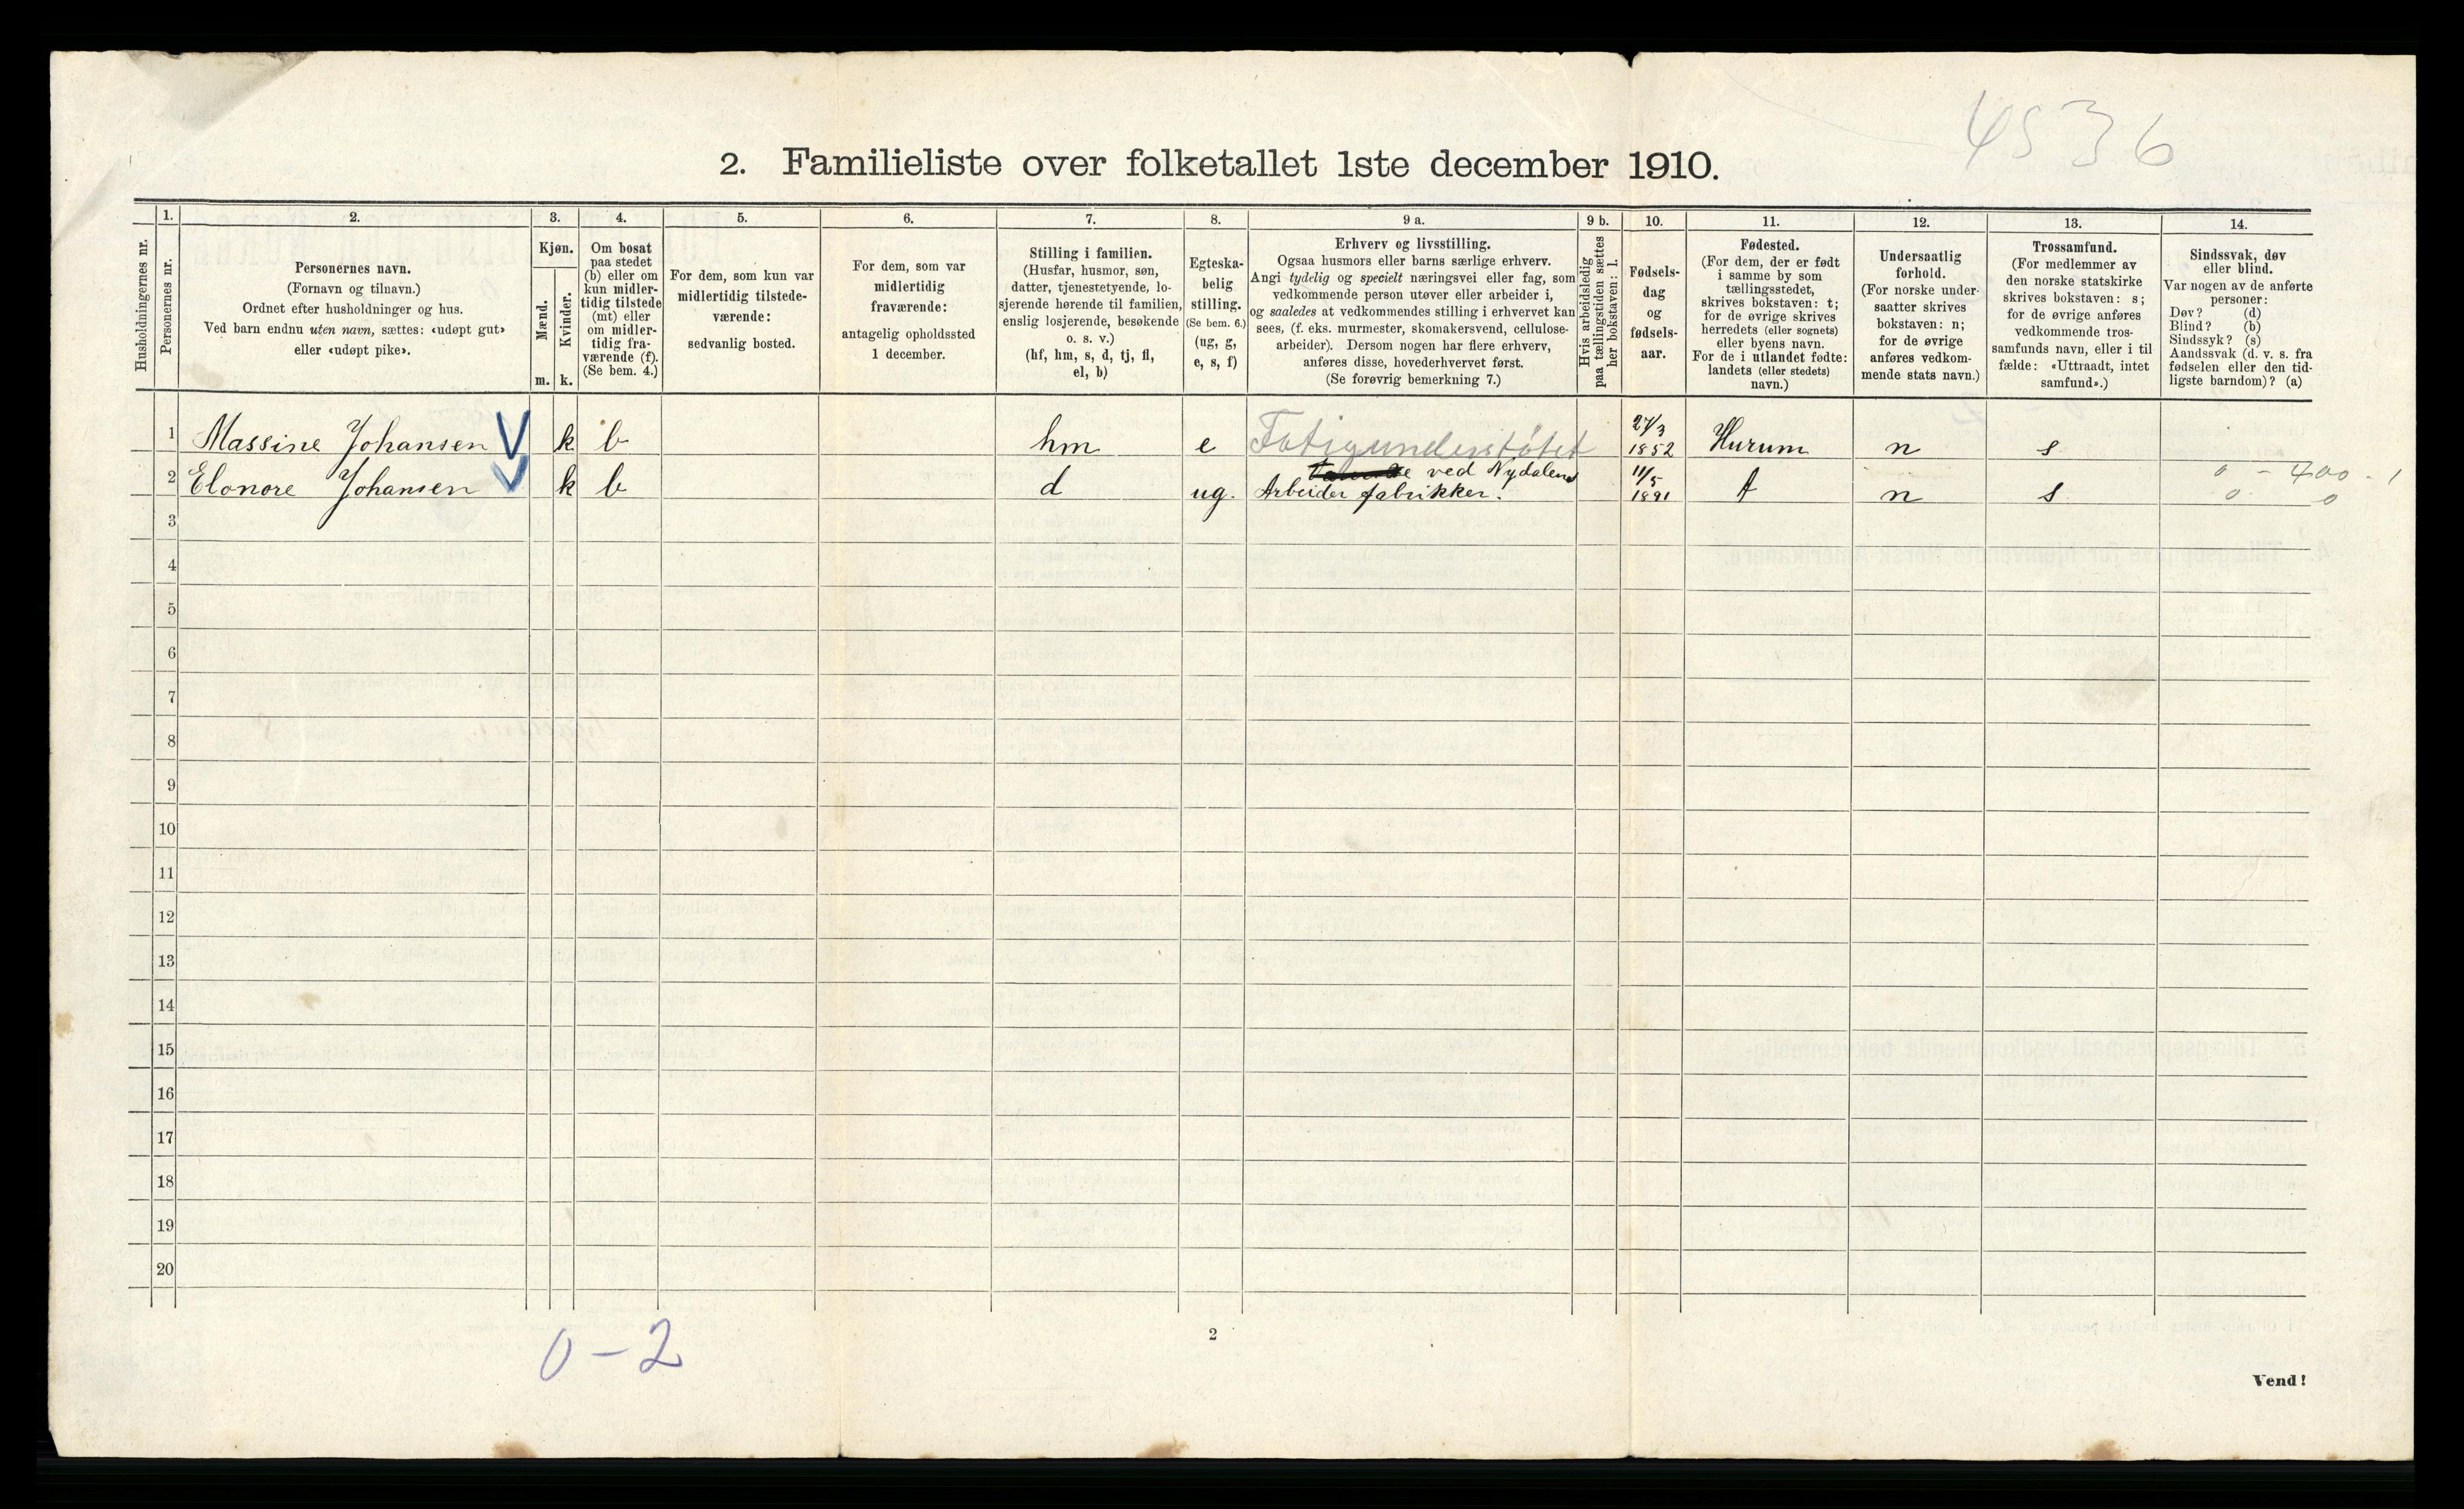 4536
2. Familieliste over folketallet 1ste december 1910.
Husholdningernes nr.
1.
Personernes nr.
2.
Personernes navn.
(Fornavn og tilnavn.)
Ordnet efter husholdninger og hus.
Ved barn endnu uten navn, sættes: «udøpt gut»
eller «udøpt pike».
3.
Kjøn.
Mænd.
Kvinder.
m. k.
4.
Om bosat
paa stedet
(b) eller om
kun midler-
tidig tilstede
(mt) eller
om midler-
tidig fra-
værende (f).
(Se bem. 4.)
5.
For dem, som kun var
midlertidig tilstede-
værende:
sedvanlig bosted.
6.
For dem, som var
midlertidig
fraværende:
antagelig opholdssted
1 december.
7.
Stilling i familien.
(Husfar, husmor, søn,
datter, tjenestetyende, lo-
sjerende hørende til familien,
enslig losjerende, besøkende
o. s. v.)
(hf, hm, s, d, tj, fl,
el, b)
8.
Egteska-
belig
stilling.
(Se bem. 6.)
(ug, g,
e, s, f)
9 a.
Erhverv og livsstilling.
Ogsaa husmors eller barns særlige erhverv.
Angi tydelig og specielt næringsvei eller fag, som
vedkommende person utøver eller arbeider i,
og saaledes at vedkommendes stilling i erhvervet kan
sees, (f. eks. murmester, skomakersvend, cellulose-
arbeider). Dersom nogen har flere erhverv,
anføres disse, hovederhvervet først.
(Se forøvrig bemerkning 7.)
9 b.
Hvis arbeidsledig
paa tællingstiden sættes
her bokstaven: l.
10.
Fødsels-
dag
og
fødsels-
aar.
11.
Fødested.
(For dem, der er født
i samme by som
tællingsstedet,
skrives bokstaven: t;
for de øvrige skrives
herredets (eller sognets)
eller byens navn.
For de i utlandet fødte:
landets (eller stedets)
navn.)
12.
Undersaatlig
forhold.
(For norske under-
saatter skrives
bokstaven: n;
for de øvrige
anføres vedkom-
mende stats navn.)
13.
Trossamfund.
(For medlemmer av
den norske statskirke
skrives bokstaven: s;
for de øvrige anføres
vedkommende tros-
samfunds navn, eller i til
fælde: «Uttraadt, intet
samfund».)
14.
Sindssvak, døv
eller blind.
Var nogen av de anførte
personer:
Døv? (d)
Blind? (b)
Sindssyk? (s)
Aandssvak (d. v. s. fra
fødselen eller den tid-
ligste barndom)? (a)
1 Massine Johansen V k b hm e Fatigunderstøtet 27/3 1852 Hurum n s 0 - 400 - 1
2 Elonore Johansen V k b d ug. Arbeider ved Nydalens fabrikker. 11/5 1891 t n s 0 0
3
4
5
6
7
8
9
10
11
12
13
14
15
16
17
18
19
20
0 - 2
2
Vend!